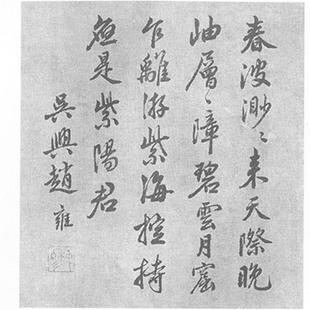 春波渺〻来天際晚
岫層〻障碧雲月窟
乍離游紫海控持
應是紫陽君
吳興趙雍